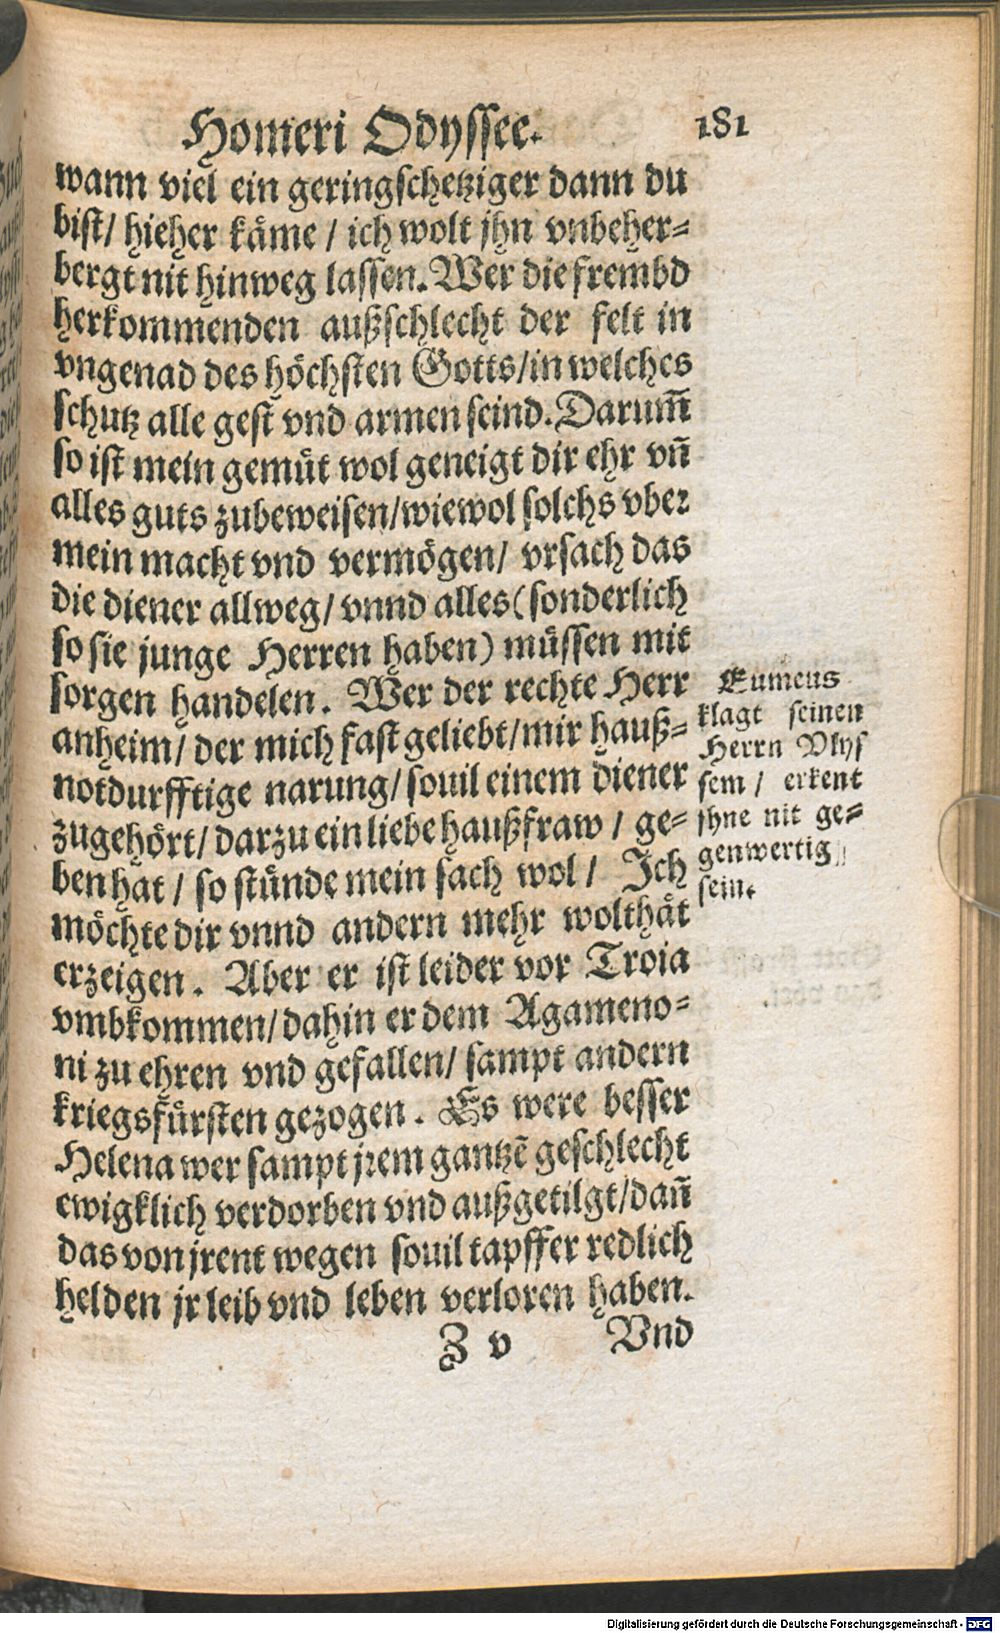 Homeri Odyssee. 181
wann viel ein geringschetziger dann du
bist/ hieher käme / ich wolt jhn vnbeher-
bergt nit hinweg lassen. Wer die frembd
herkommenden außschlecht der felt in
vngenad des höchsten Gotts/in welches
schutz alle gest vnd armen seind. Darum̃
so ist mein gemüt wol geneigt dir ehr vñ
alles guts zubeweisen/wiewol solchs vber
mein macht vnd vermögen/ vrsach das
die diener allweg/ vnnd alles (sonderlich
so sie junge Herren haben) müssen mit
sorgen handelen. Wer der rechte Herr
anheim/ der mich fast geliebt/mir hauß-
notdurfftige narung/ souil einem diener
zugehört/ darzu ein liebe haußfraw / ge-
ben hat / so stünde mein sach wol / Ich
möchte dir vnnd andern mehr wolthät
erzeigen. Aber er ist leider vor Troia
vmbkommen/dahin er dem Agameno-
ni zu ehren vnd gefallen/ sampt andern
kriegsfürsten gezogen. Es were besser
Helena wer sampt jrem gantzẽ geschlecht
ewigklich verdorben vnd außgetilgt/dañ
das von jrent wegen souil tapffer redlich
helden jr leib vnd leben verloren haben.
Z v Vnd
Eumeus
klagt seinen
Herrn Vlys
sem / erkent
jhne nit ge-
genwertig
sein.
Digitalisierung gefördert durch die Deutsche Forschungsgemeinschaft - DFG